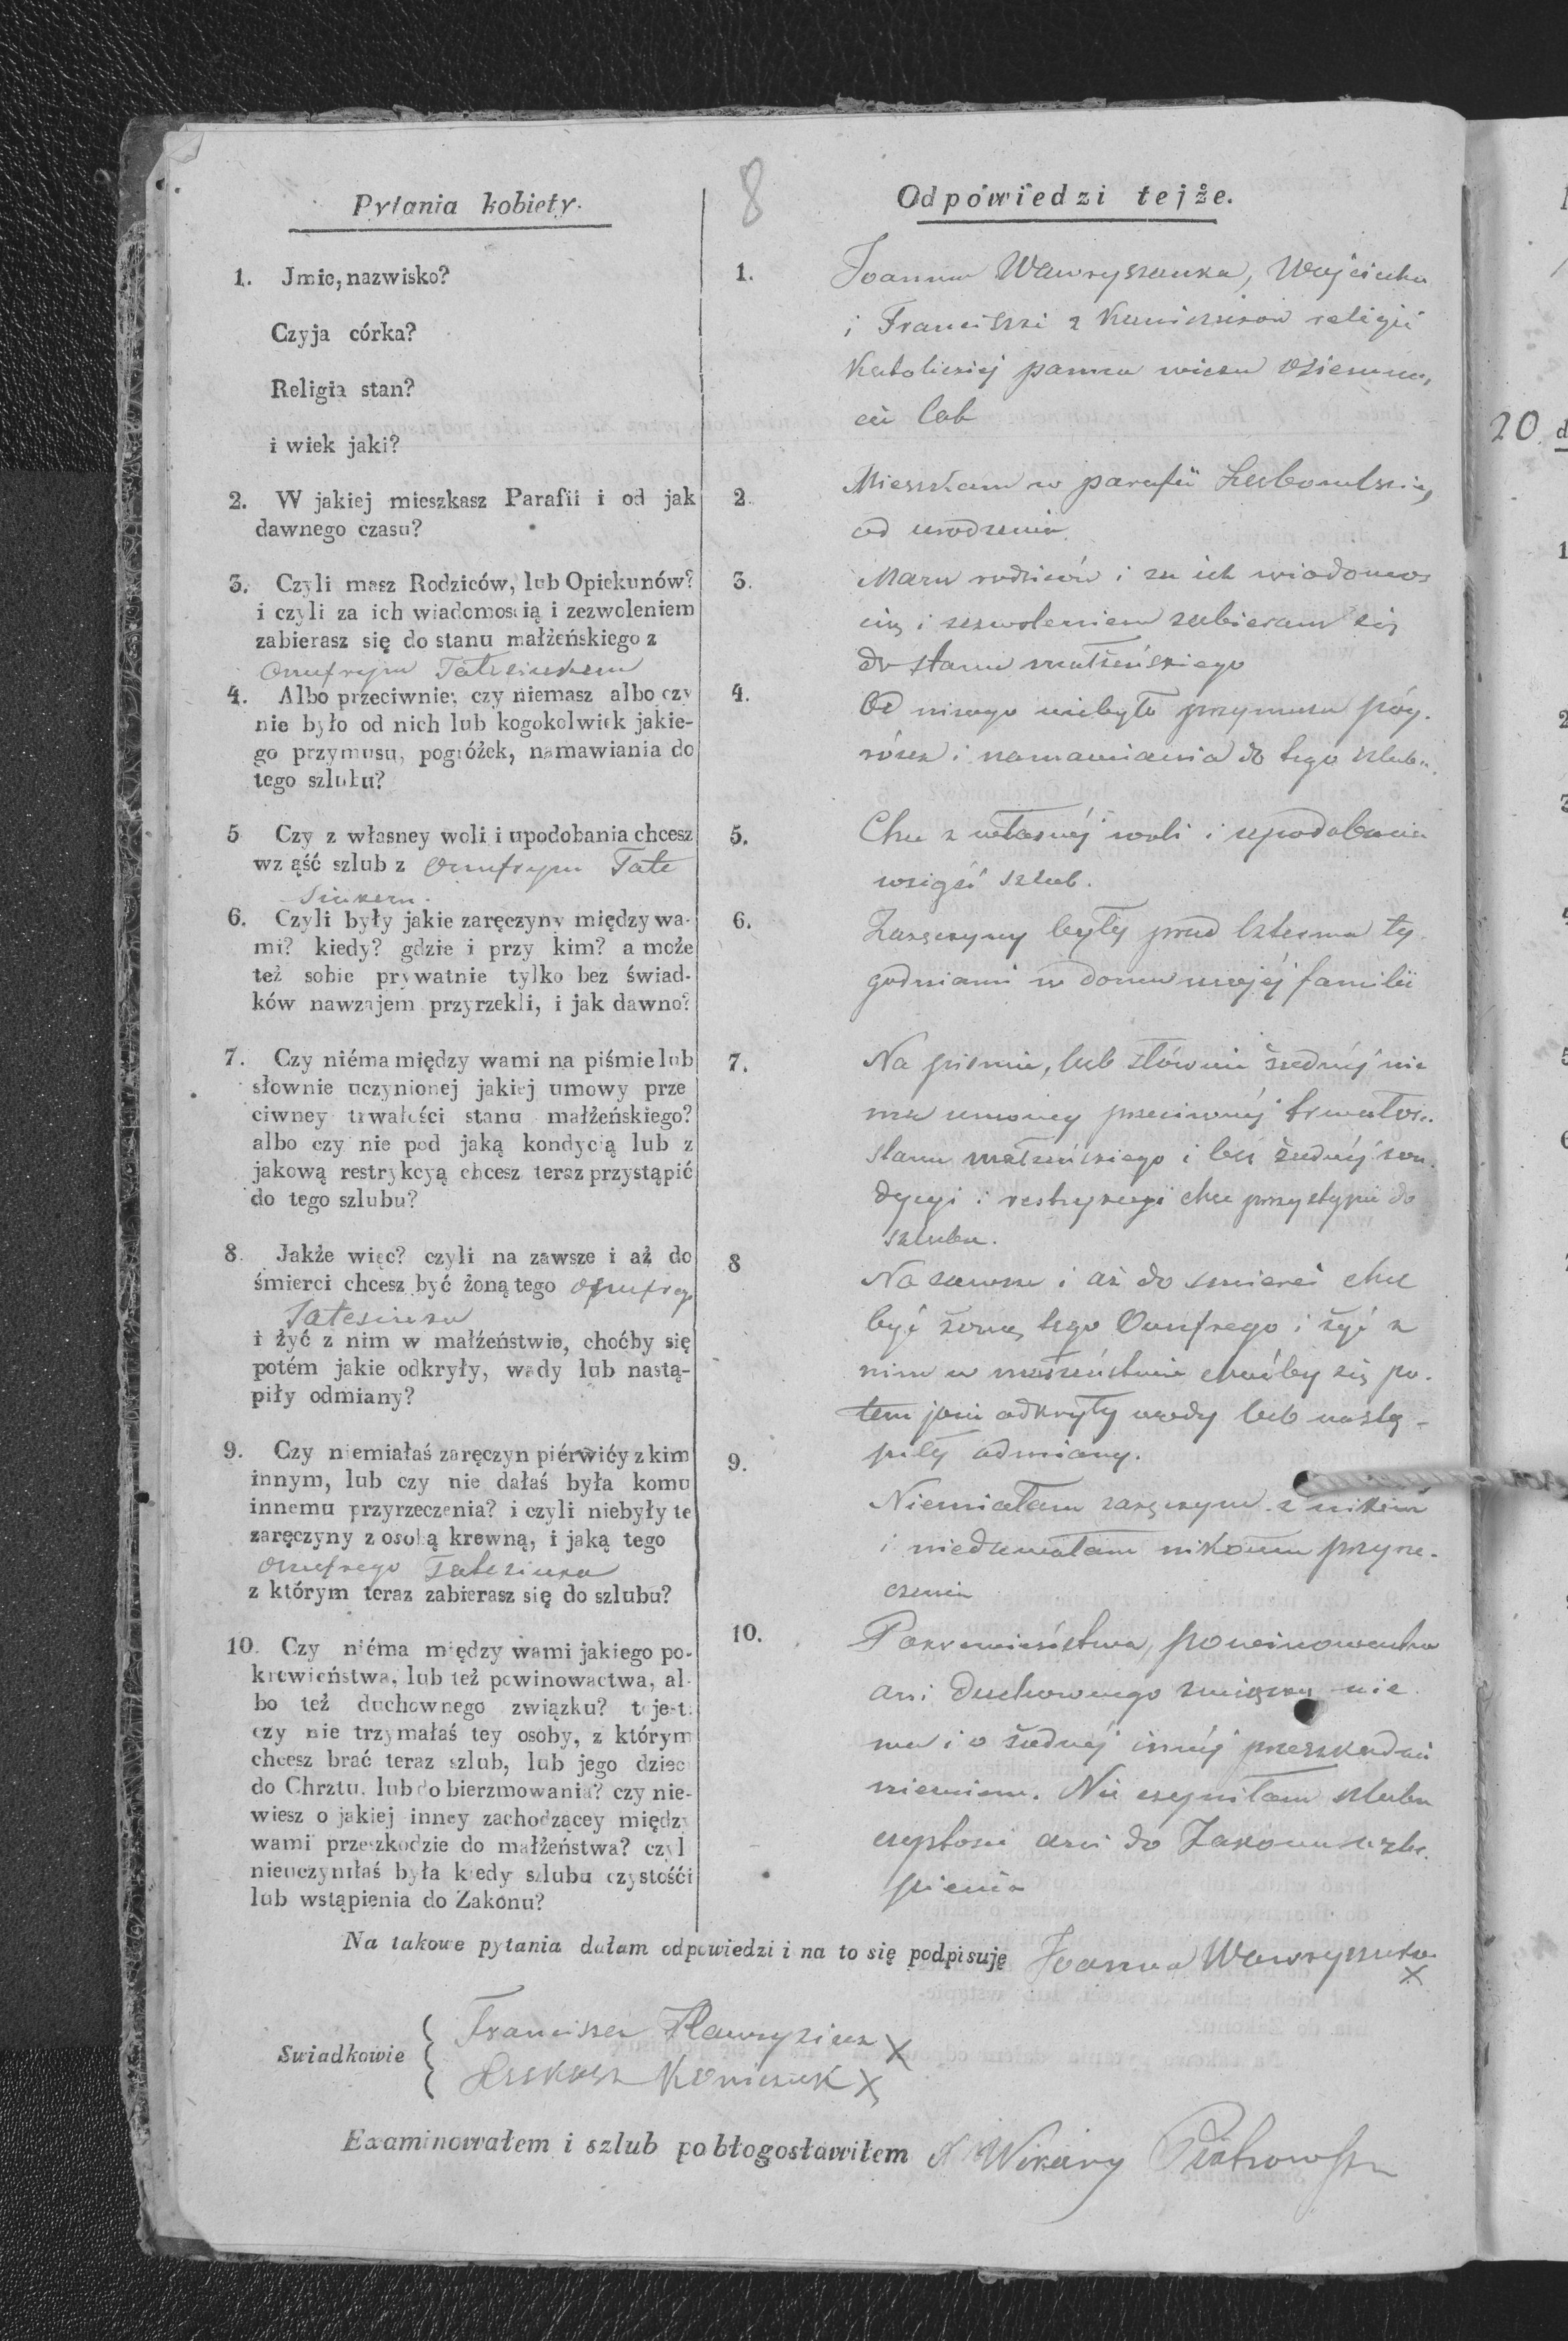 8
Pytania kobiety.
1. Jmie, nazwisko?
Czyja córka?
Religia stan?
i wiek jaki?
2. W jakiej mieszkasz Parafii i od jak
dawnego czasu?
3. Czyli masz Rodziców, lub Opiekunów?
i czyli za ich wiadomością i zezwoleniem
zabierasz się do stanu małżeńskiego z
Onufrym
4. Albo przeciwnie; czy niemasz albo czy
nie było od nich lub kogokolwiek jakie-
go przymusu, pogróżek, namawiania do
tego szlubu?
5 Czy z własney woli i upodobania chcesz
wziąść szlub z Onufrym Tate
siukem.
6. Czyli były jakie zaręczyny między wa-
mi? kiedy? gdzie i przy kim? a może
też sobie prywatnie tylko bez świad-
ków nawzajem przyrzekli, i jak dawno?
7. Czy niéma między wami na piśmie lub
słownie uczynionej jakiej umowy prze
ciwney trwałości stanu małżeńskiego?
albo czy nie pod jaką kondycią lub z
jakową restrykcyą chcesz teraz przystąpić
do tego szlubu?
8. Jakże więc? czyli na zawsze i aż do
śmierci chcesz być żoną tego Onufrego
Tatesiuka
i żyć z nim w małżeństwie, choćby się
potém jakie odkryły, wady lub nastą-
piły odmiany?
9. Czy niemiałaś zaręczyn piérwićy z kim
innym, lub czy nie dałaś była komu
innemu przyrzeczenia? i czyli niebyły te
zaręczyny z osobą krewną, i jaką tego
Onufrego Tatesiuka
z którym teraz zabierasz się do szlubu?
10. Czy niéma między wami jakiego po-
krewieństwa, lub też powinowactwa, al-
bo też duchownego związku? to jest:
czy nie trzymałaś tey osoby, z którym
chcesz brać teraz szlub, lub jego dzieci
do Chrztu, lub do bierzmowania? czy nie-
wiesz o jakiej inney zachodzącey między
wami przeszkodzie do małżeństwa? czyl
nieuczyniłaś była kiedy szlubu czystośći
lub wstąpienia do Zakonu?
Odpowiedzi tejże.
1. Joanna Wawryszuka, Wojciecha
i Franciszki z religii
Katolickiej panna wieku osiemna,
cie lat
2. Mieszkam w parafii
od urodzenia
3. Mam rodziców i za ich wiadomoś
cią i zezwoleniem zabieram się
do stanu małżeńskiego
4. Od nikogo niebyło przymusu póg.
różek i namawiania do tego szlubu.
5. Chce z własnéj woli i upodobania
wziąść szlub.
6. Zaręczyny były pred czterma ty
godniami w domu mojéj familii
7. Na pismie, lub słównie żadnéj nie
ma umowy przeciwnéj trwałości
stanu małżeńskiego i bez żadnéj kon.
dycyi i restrykcyi chce przystąpić do
szlubu.
8 Na zawsze i aż do smierci chce
być żoną tego Onufrego i żyć z
nim w małżeństwie choćby się po.
tem jakie odkryły wady lub nastą-
piły odmiany.
9. Niemiałam zaręczyn z nikim
i niedawałam nikomu przyrze.
czenia
10. Pokrewieństwa, powinowactwa
ani duchownego związku nie
ma i o żadnéj innéj przeszkodzie
niewiem. Nie czyniłam szlubu
czystosci ani do Zakonu wstą.
pienia
Na takowe pytania dałam odpowiedzi i na to się podpisuję Joanna Wawryszuka
X
Swiadkowie
Franciszek X
Łukasz Koniczuk X
Examinowałem i szlub pobłogosławiłem X Wikary Piotrowski
20